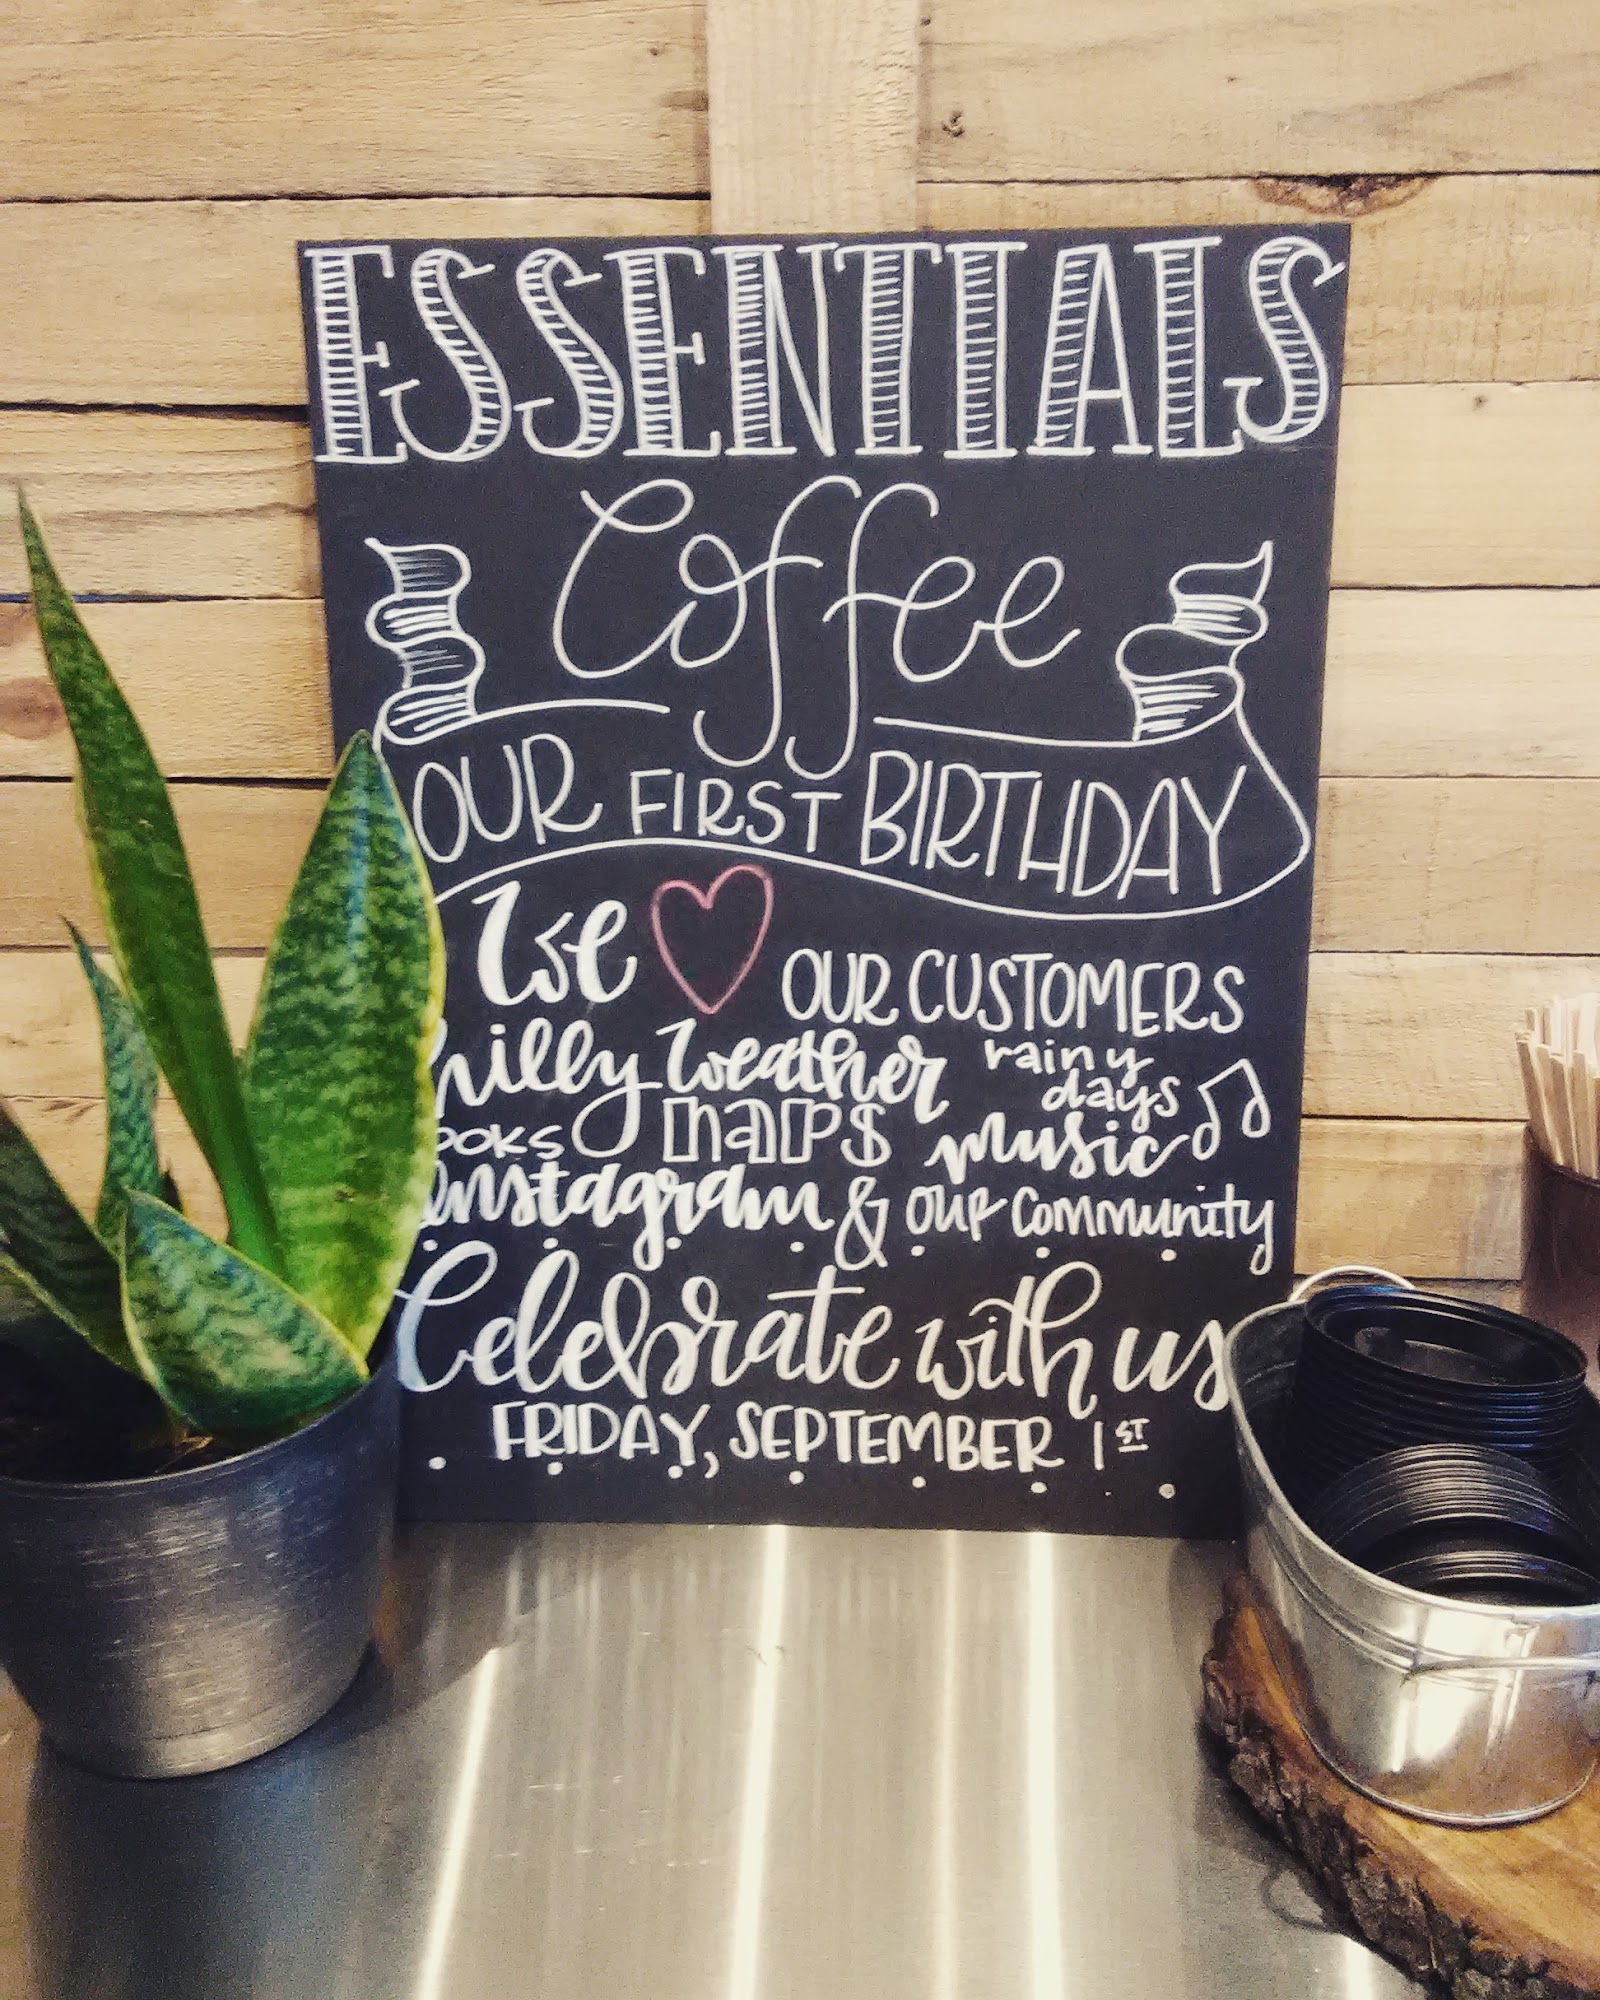 ESSENTIALS
Coffee
OUR FIRST BIRTHDAY
We OUR CUSTOMERS
hilly weather rainy days
ooks naps music
Instagram & our community
Celebrate with us
FRIDAY, SEPTEMBER 1ST